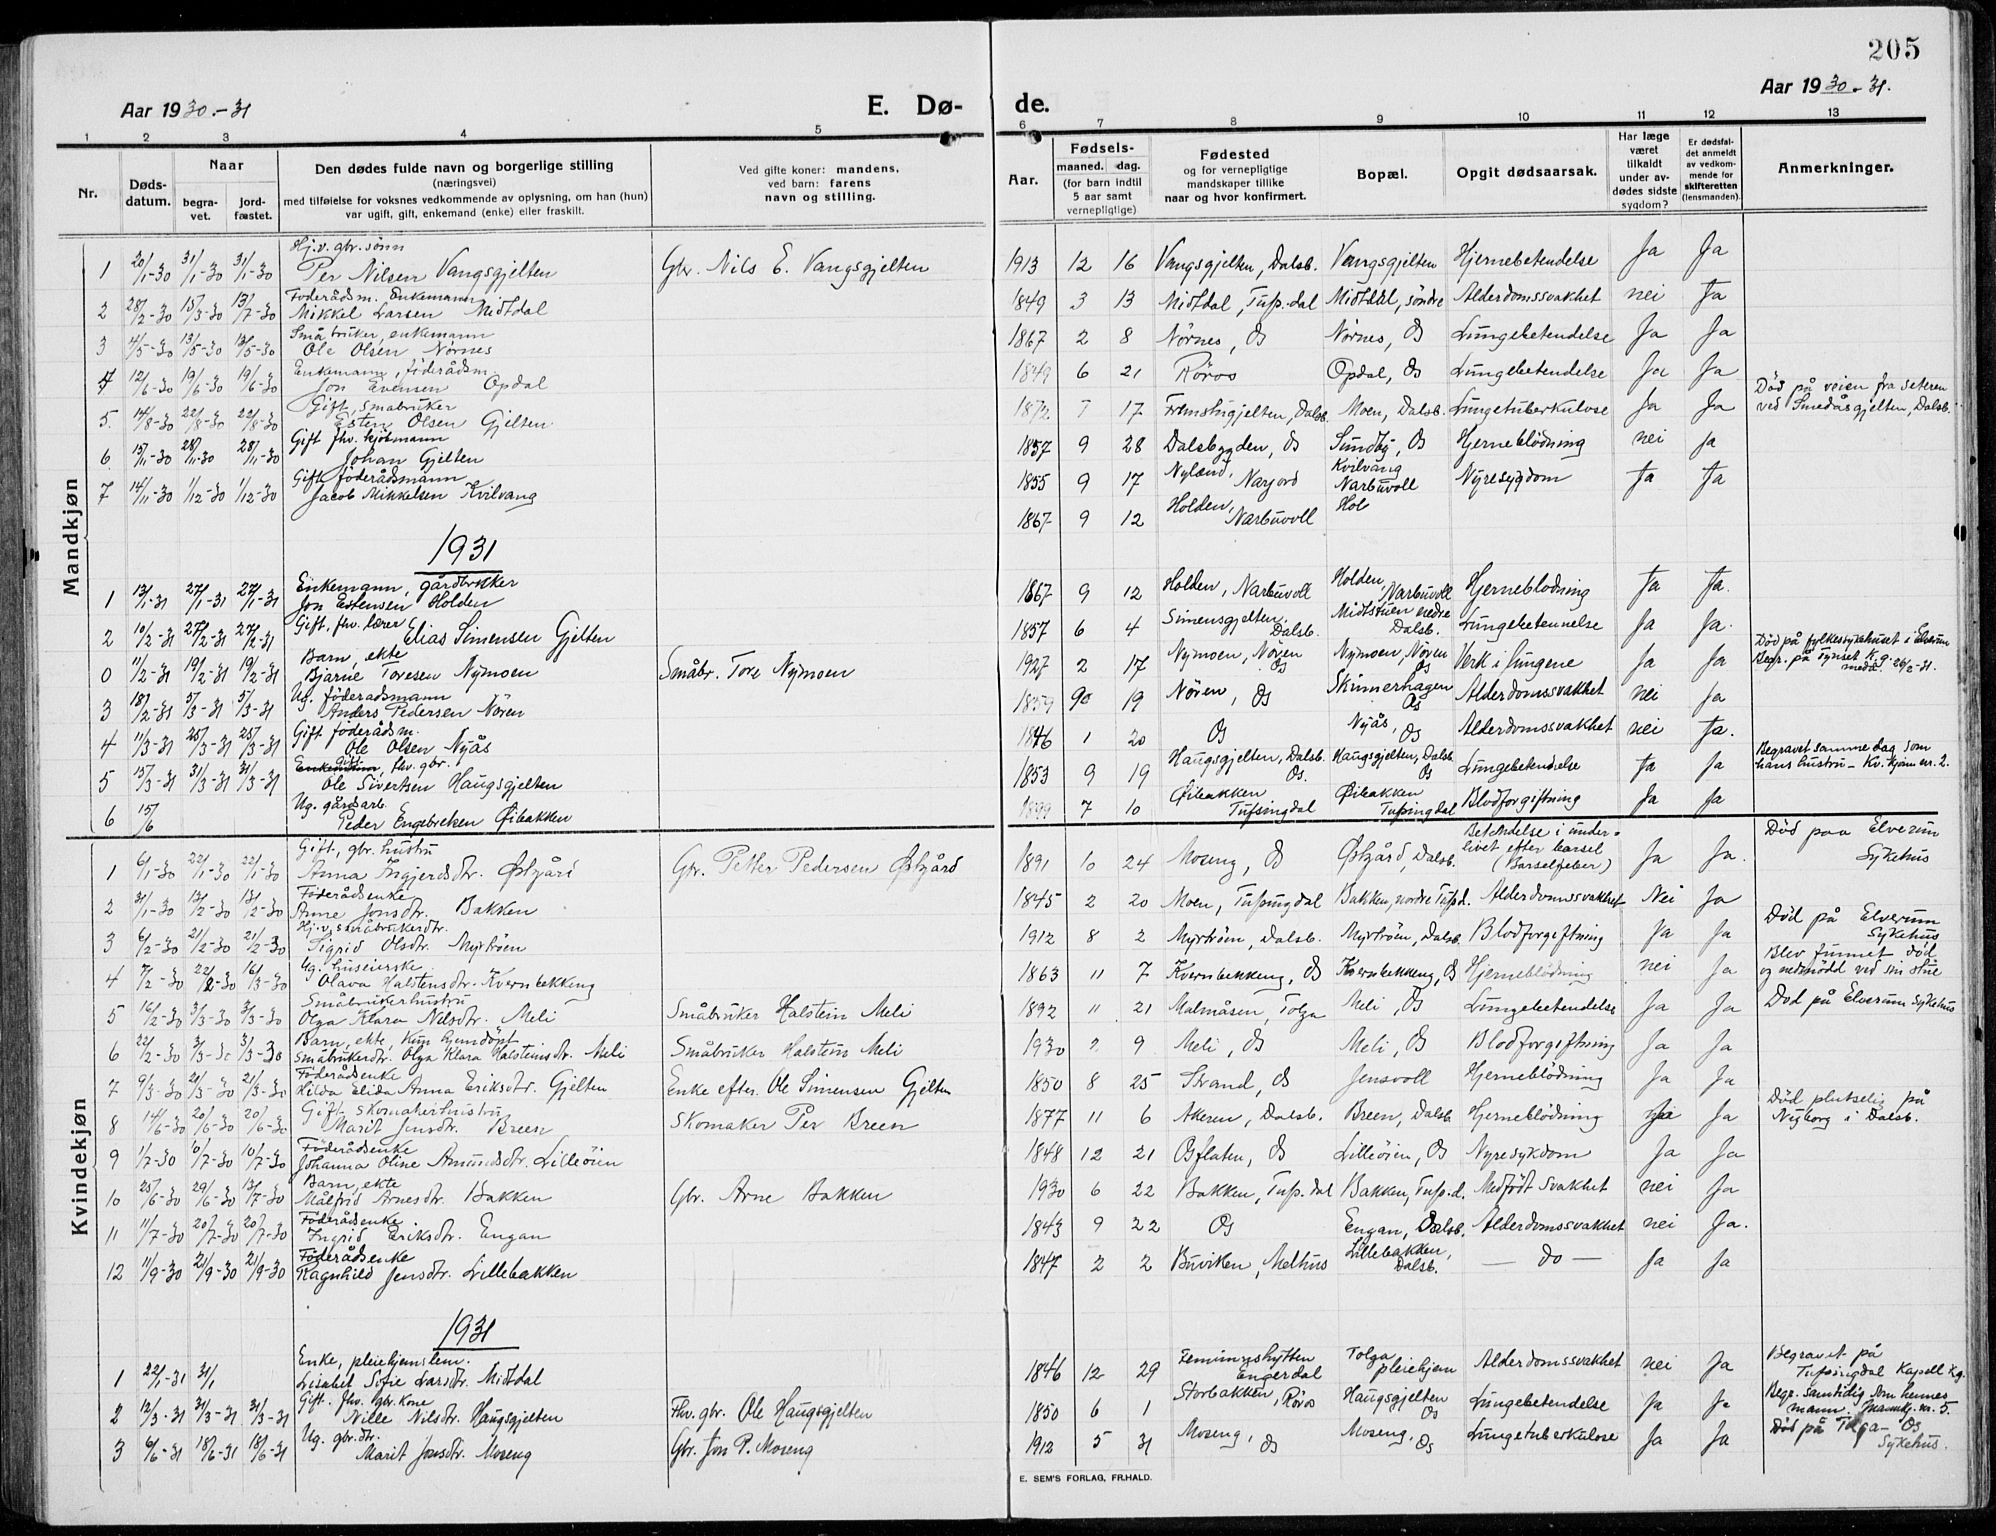 205
Aar 1930.-31
E. Dø-
de.
Aar 1930.-31.
1 2 3 4 5 6 7 8 9 10 11 12 13
Nr.
Døds-
datum.
Naar
begra-
vet.
jord-
fæstet.
Den dødes fulde navn og borgerlige stilling
(næringsvei)
med tilføielse for voksnes vedkommende av oplysning, om han (hun)
var ugift, gift, enkemand (enke) eller fraskilt.
Ved gifte koner: mandens,
ved barn: farens
navn og stilling.
Aar.
Fødsels-
maaned. dag.
(for barn indtil
5 aar samt
vernepligtige)
Fødested
og for vernepligtige
mandskaper tillike
naar og hvor konfirmert.
Bopæl.
Opgit dødsaarsak.
Har læge
været
tilkaldt
under av-
dødes sidste
sygdom?
Er dødsfal-
det anmeldt
av vedkom-
mende for
skifteretten
(lensmanden).
Anmerkninger.
Mandkjøn
Hj.v. gbr. sønn
1 20/1-30 31/1-30 31/1-30 Per Nilsen Vangsgjelten Gbr. Nils E. Vangsgjelten 1913 12 16 Vangsgjelten, Dalsb. Vangsgjelten Hjernebetendelse Ja Ja
Föderådsm. Enkemann
2 28/2-30 15/3-30 13/7-30 Mikkel Larsen Midtdal 1849 3 13 Midtdal, Tufs.-dal Midtdal, søndre Alderdomssvakhet nei Ja
Småbruker, enkemann
3 4/5-30 13/5-30 13/5-30 Ole Olsen Nørnes 1867 2 8 Nörnes, Os Nörnes, Os Lungebetendelse Ja Ja
Enkemann, föderådsm.
4 12/6-30 19/6-30 19/6-30 Jon Evensen Opdal 1849 6 21 Röros Opdal, Os Lungebetendelse Ja Ja
Gift, småbruker
5. 14/8-30 22/8-30 22/8-30 Esten Olsen Gjelten 1872 7 17 Fremstugjelten, Dalsb. Moen, Dalsb. Lungetuberkulose Ja Ja Död på veien fra seteren
ved Smedåsgjelten, Dalsb.
Gift fhv. kjøbmann
6 15/11-30 28/11-30 28/11-30 Johan Gjelten 1857 9 28 Dalsbygden, Os Sundby, Os Hjerneblödning nei Ja
Gift föderådsmann
7 14/11-30 1/12-30 1/12-30 Jacob Mikkelsen Kvilvang 1855 9 17 Nyland, Narjord Kvilvang Narbuvoll Nyresygdom Ja Ja
1867 9 12 Holden, Narbuvoll Hol
1931
Enkemann, gårdbruker
1 13/1-31 27/1-31 27/1-31 Jon Estensen Holden 1867 9 12 Holden, Narbuvoll Holden, Narbuvoll Hjerneblödning Ja Ja.
Gift, fhv. lærer
2 10/2-31 27/2-31 27/2-31 Elias Simensen Gjelten 1857 6 4 Simensgjelten, Dalsb. Midtstuen nedre Dalsb. Lungebetennelse Ja Ja.
Barn, ekte
0 11/2-31 19/2-31 19/2-31 Bjarne Toresen Nymoen Småbr. Tore Nymoen 1927 2 17 Nymoen, Nören Os Nymoen, Nören Os Verk i lungene Ja Ja Död på fylkessykehuset i Elverum
Begr. på Tynset K.g. 26/2-31.
Ug. föderadsmann
3 18/2-31 5/3-31 5/3-31 Anders Pedersen Nören 1859 90 19 Nören, Os Skinnerhagen Os Alderdomssvakhet nei Ja
Gift föderådsm.
4 11/3-31 25/3-31 25/3-31 Ole Olsen Nyås 1846 1 20 Os Nyås, Os Alderdomssvakhet nei Ja.
Enkemann gift, fhv. gbr.
5 15/3-31 31/3-31 31/3-31 Ole Sivertsen Haugsgjelten 1853 9 19 Haugsgjelten, Dalsb. Os. Haugsgjelten, Dalsb. Os Lungebetendelse Ja Ja Begravet samme dag som
hans hustru - Kv. kjönn nr. 2.
Ug. gårdsarb.
6 15/6 Peder Engebretsen Øibakken 1899 7 10 Øibakken Tufsingdal Øibakken Tufsingdal Blodforgiftning Ja Ja
Kvindekjøn
Gift, gbr. hustru
1 6/1-30 22/1-30 22/1-30 Anna Ingjerdsdtr. Østgård Gbr. Petter Pedersen Østgård 1891 10 24 Moseng, Os Østgård, Dalsb. Betændelse i under-
livet efter barsel
(Barselfeber) Ja Ja. Död paa Elverum
Sykehus
Föderådsenke
2 31/1-30 13/2-30 13/2-30 Anne Jonsdtr. Bakken 1845 2 20 Moen, Tufsingdal Bakken, nordre Tufsd. Alderdomssvakhet Nei Ja
Hj.v. småbrukerdtr.
3 6/2-30 21/2-30 21/2-30 Sigrid Olsdtr. Myrtröen 1912 8 2 Myrtröen, Dalsb. Myrtröen, Dalsb. Blodforgiftning Ja Ja Död på Elverum
Sykehus
Ug. huseierske
4 7/2-30 22/2-30 16/3-30 Olava Halstensdtr. Kvernbekkeng 1863 11 7 Kvernbekkeng, Os Kvernbekkeng, Os Hjerneblödning nei Ja Blev funnet död
og nedsnödd ved sin stue
Småbrukerhustru
5 16/2-30 3/3-30 3/3-30 Olga Klara Nilsdtr. Meli Småbruker Halstein Meli 1892 11 21 Malmåsen, Tolga Meli, Os Lungebetendelse Ja Ja Död på Elverum Sykehus
Barn, ekte, kun hjemdöpt
6 22/2-30 3/3-30 3/3-30 Småbrukerdtr. Olga Klara Halsteinsdtr. Meli Småbruker Halstein Meli 1930 2 9 Meli, Os Meli, Os Blodforgiftning Ja Ja
Föderådsenke
7 9/3-30 21/3-30 21/3-30 Hilda Elida Anna Eriksdtr. Gjelten Enke efter Ole Simensen Gjelten 1850 8 25 Strand, Os Jensvoll Hjerneblödning Ja Ja
Gift, skomakerhustru
8 14/6-30 20/6-30 20/6-30 Marit Jensdtr. Breen Skomaker Per Breen 1877 11 6 Akeren, Dalsb. Breen, Dalsb. Hjerneblödning nei Ja Död plutselig på
Nyborg i Dalsb.
Föderådsenke
9 1/7-30 10/7-30 10/7-30 Johanna Oline Amundsdtr. Lilleöien 1848 12 21 Osflaten, Os Lilleöien, Os Nyresykdom Ja Ja
Barn, ekte
10 25/6-30 29/6-30 13/7-30 Målfrid Arnesdtr. Bakken Gbr. Arne Bakken 1930 6 22 Bakken, Tufs.dal Bakken, Tufs.d. Medfödt svakhet nei Ja
Föderådsenke
11 11/7-30 20/7-30 20/7-30 Ingrid Eriksdtr. Engan 1843 9 22 Os Engan, Dalsb. Alderdomssvakhet nei Ja.
Föderådsenke
12 11/9-30 21/9-30 21/9-30 Ragnhild Jensdtr. Lillebakken 1847 2 2 Buviken, Melhus Lillebakken, Dalsb. — do — Ja Ja
1931
Enke, pleiehjemslem.
1 22/1-31 31/1 Lisabet Sofie Larsdtr. Midtdal 1846 12 29 Femundshytten Engerdal Tolga pleiehjem Alderdomssvakhet nei Ja Begravet på
Tufsingdal Kapell Kg.
Gift. fhv. gbr. kone
2 12/3-31 31/3-31 31/3-31 Nille Nilsdtr. Haugsgjelten Fhv. gbr. Ole Haugsgjelten 1850 6 1 Storbakken, Röros Haugsgjelten Os Lungebetendelse Ja Ja Begr. samtidig som hennes
mann. Mannkj. nr. 5.
Ug. gbr.dtr.
3 6/6-31 18/6-31 18/6-31 Marit Jonsdtr. Moseng Gbr. Jon P. Moseng 1912 5 31 Moseng, Os Moseng, Os Lungetuberkulose Ja Ja Död på Tolga-Os
Sykehus.
E. SEM'S FORLAG, FR.HALD.